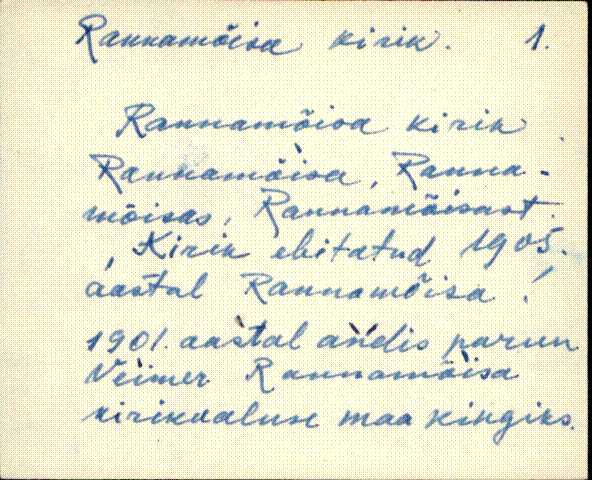 Rannamõisa kirik. 1.
Rannamõisa kirik
Rannamõisa, Ranna-
mõisas, Rannamõisast.
Kirik ehitatud 1905.
aastal Rannamõisa!
1901. aastal andis parun
Veimer Rannamõisa
kirikualuse maa kingiks.